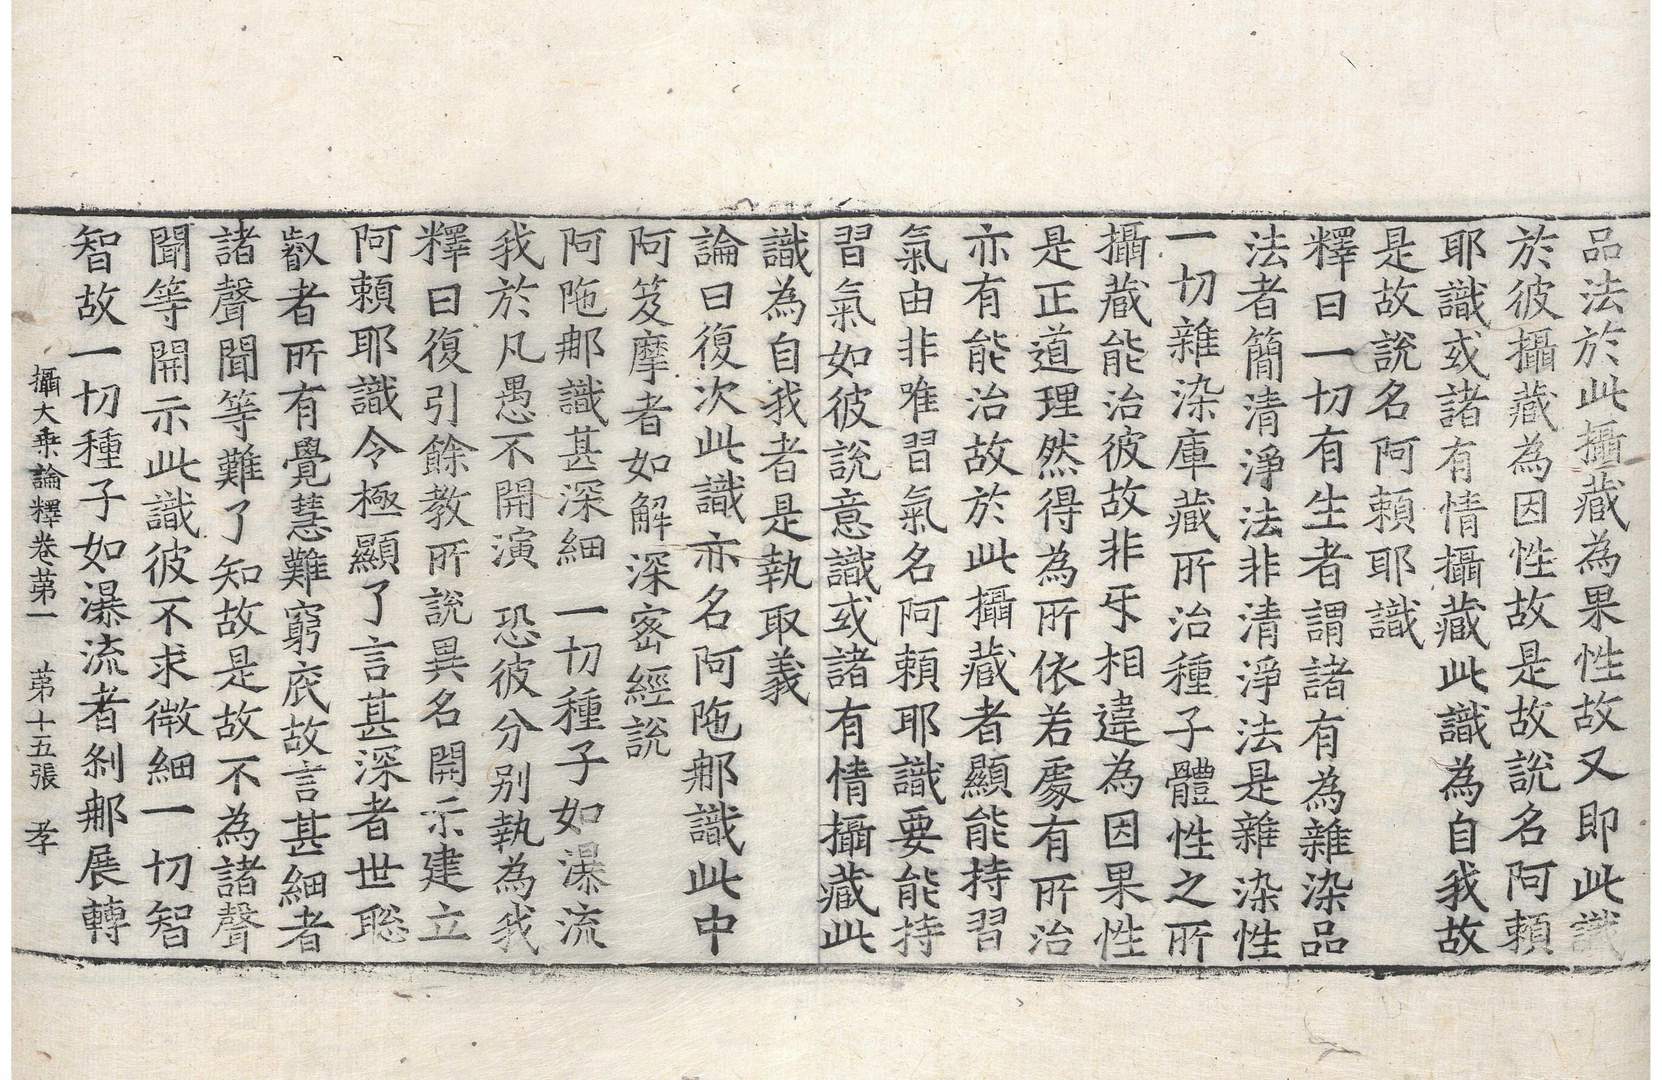 品法於此攝藏為果性故又即此識
於彼攝藏為因性故是故說名阿頼
耶識或諸有情攝藏此識為自我故
是故說名阿頼耶識
釋曰一切有生者謂諸有為雜染品
法者簡清淨法非清淨法是雜染性
一切雜染庫藏所治種子體性之所
攝藏能治彼故非㸦相違為因果性
是正道理然得為所依若處有所治
亦有能治故於此攝藏者顯能持習
氣由非唯習氣名阿頼耶識要能持
習氣如彼說意識或諸有情攝藏此
識為自我者是執取義
論曰復次此識亦名阿陁那識此中
阿笈摩者如解深密經說
阿陁那識甚深細　一切種子如瀑流
我於凡愚不開演　恐彼分別執為我
釋曰復引餘教所說異名開示建立
阿頼耶識令極顯了言甚深者世聡
叡者所有覺慧難窮底故言甚細者
諸聲聞等難了知故是故不為諸聲
聞等開示此識彼不求微細一切智
智故一切種子如瀑流者剎那展轉
攝大乘論釋卷苐一　苐十五張　孝